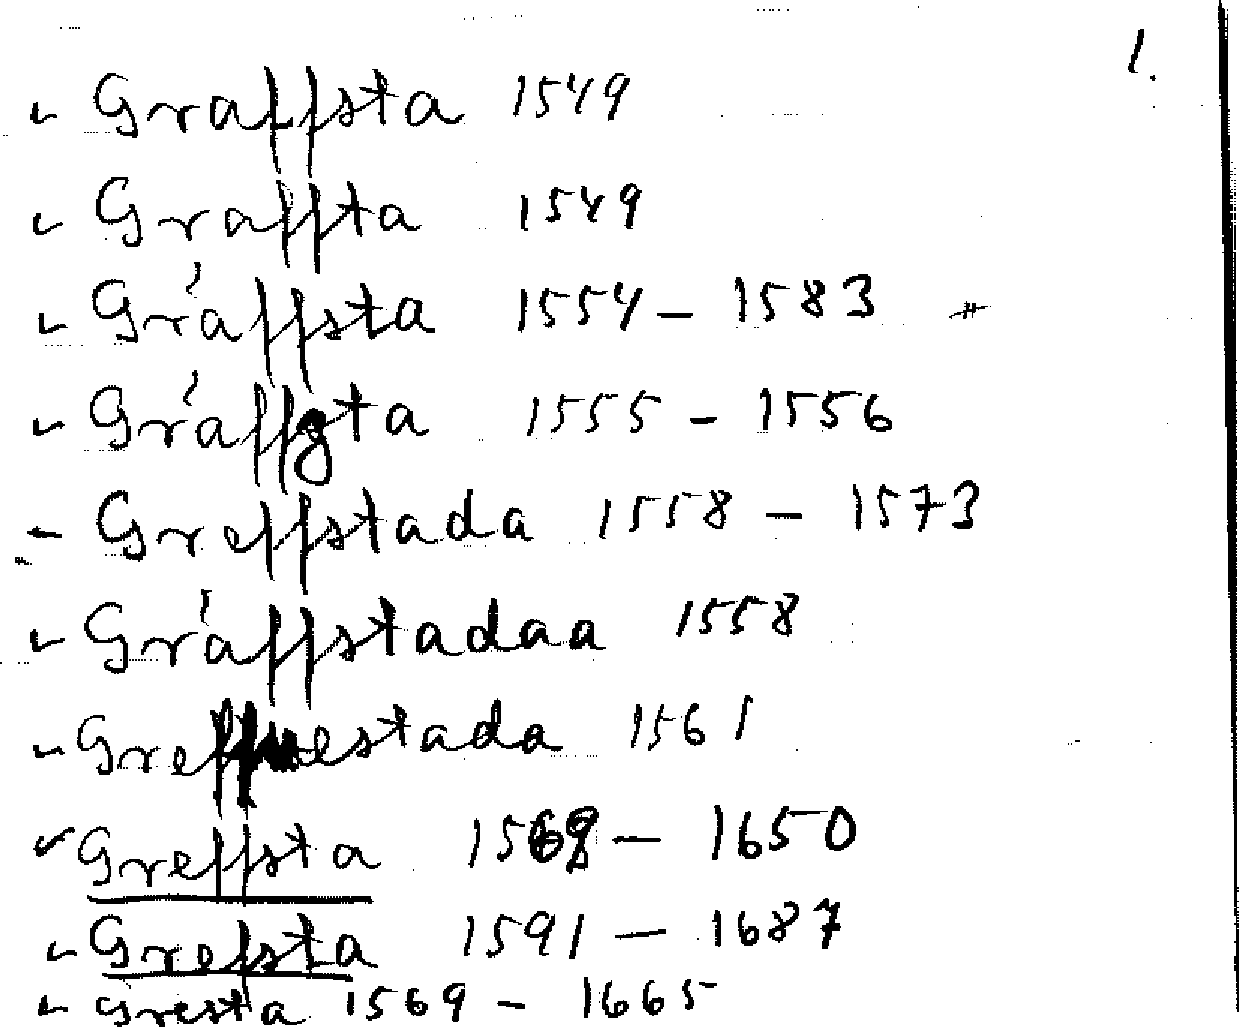 1.
Graffsta 1549
Graffta 1549
Gráffsta 1554 - 1583
Gráffgta 1555 - 1556
Greffstada 1558 - 1573
Gráffstadaa 1558
1561
Greffsta - 1650
Grefsta 1591 - 1687
Gresta 1569 - 1665